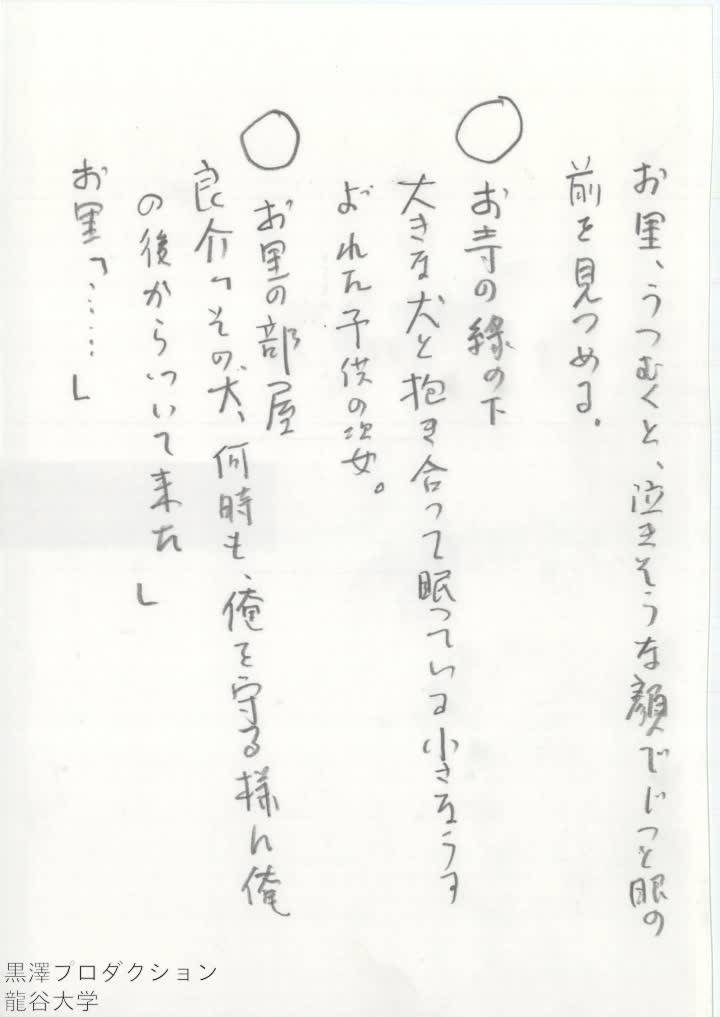 お里、うつむくと、泣きそうな顔でじっと眼の
前を見つめる。
○お寺の縁の下
大きな犬と抱き合って眠っている小さなうす
よごれた子供の姿。
○お里の部屋
良介「その犬、何時も、俺を守る様に俺
の後からついて来た」
お里「……」
黒澤プロダクション
龍谷大学